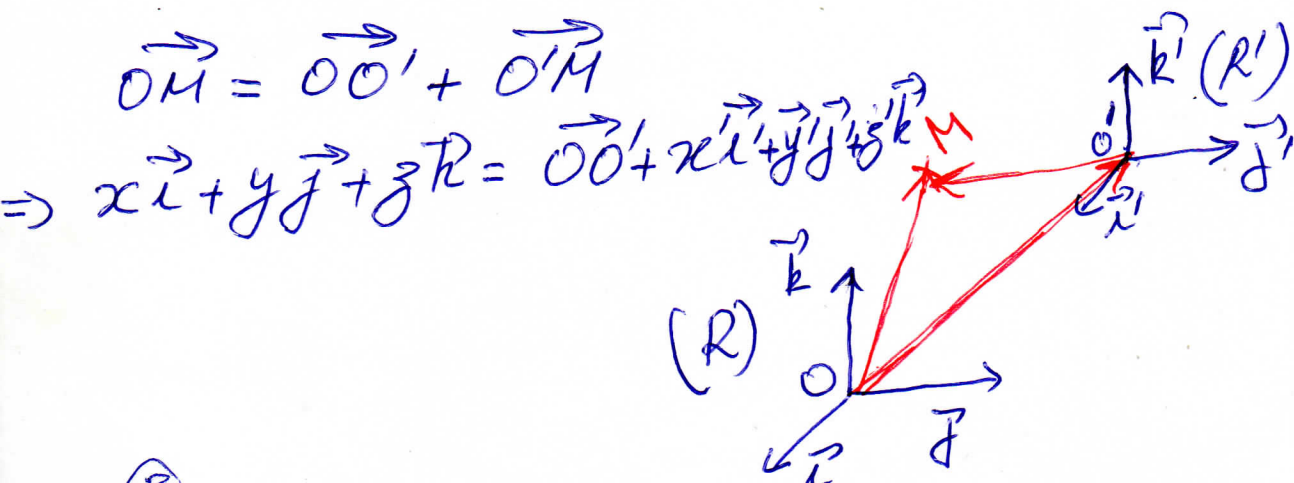 OM⃗ = OO'⃗ + O'M⃗
⇒ x i⃗ + y j⃗ + z k⃗ = OO'⃗ + x' i'⃗ + y' j'⃗ + z' k'⃗
M
k'⃗ (R')
O'
j'⃗
i'⃗
k⃗
(R)
O
j⃗
i⃗